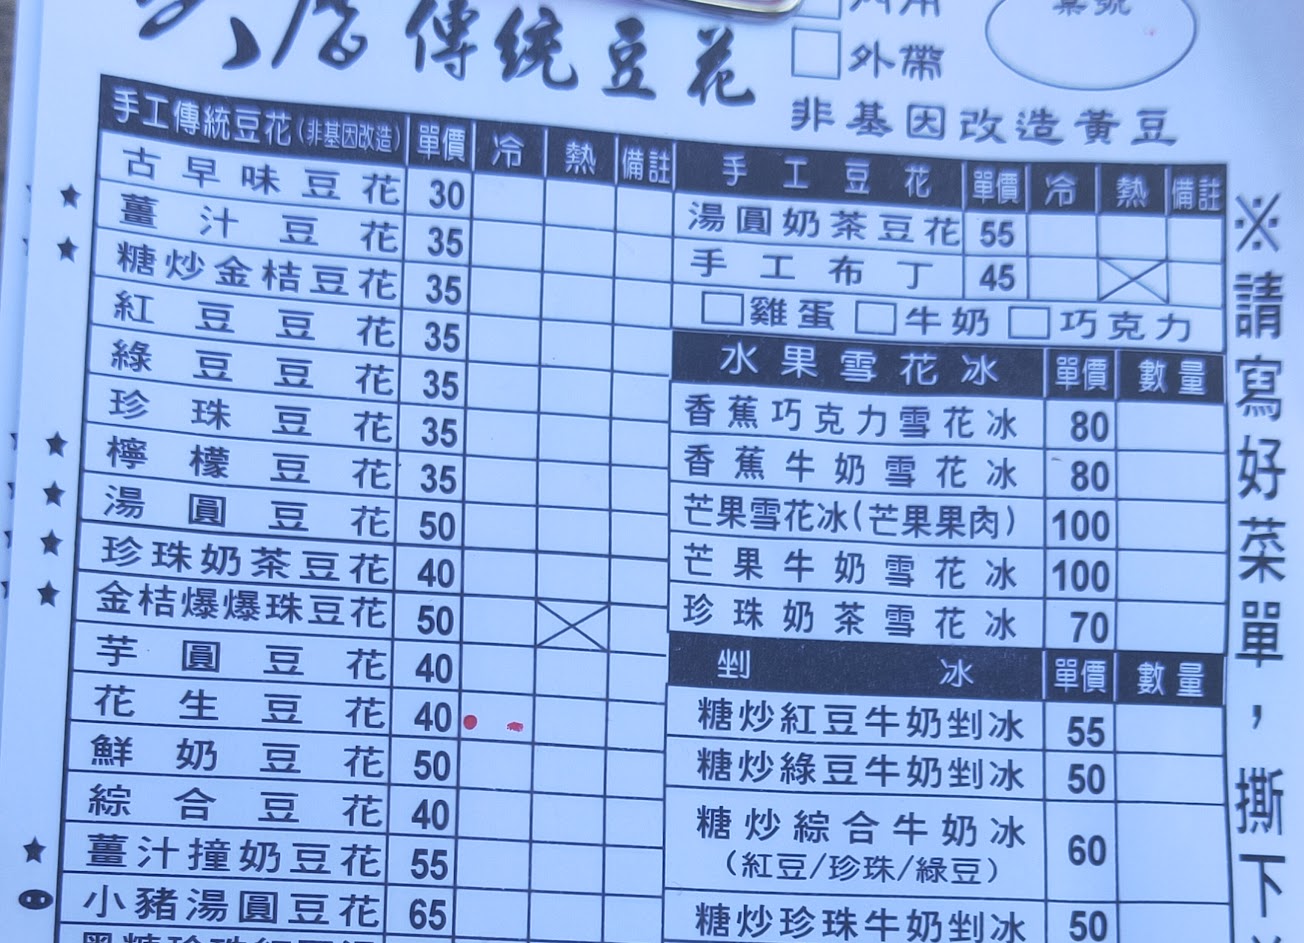 傳統豆花
外帶
非基因改造黃豆
手工傳統豆花(非基因改造) 單價 冷 熱 備註
古早味豆花 30
薑汁豆花 35
糖炒金桔豆花 35
紅豆豆花 35
綠豆豆花 35
珍珠豆花 35
檸檬豆花 35
湯圓豆花 50
珍珠奶茶豆花 40
金桔爆爆珠豆花 50
芋圓豆花 40
花生豆花 40
鮮奶豆花 50
綜合豆花 40
薑汁撞奶豆花 55
小豬湯圓豆花 65
手工豆花 單價 冷 熱 備註
湯圓奶茶豆花 55
手工布丁 45
雞蛋 牛奶 巧克力
水果雪花冰 單價 數量
香蕉巧克力雪花冰 80
香蕉牛奶雪花冰 80
芒果雪花冰(芒果果肉) 100
芒果牛奶雪花冰 100
珍珠奶茶雪花冰 70
剉冰 單價 數量
糖炒紅豆牛奶剉冰 55
糖炒綠豆牛奶剉冰 50
糖炒綜合牛奶冰 60
(紅豆/珍珠/綠豆)
糖炒珍珠牛奶剉冰 50
※請寫好菜單，撕下